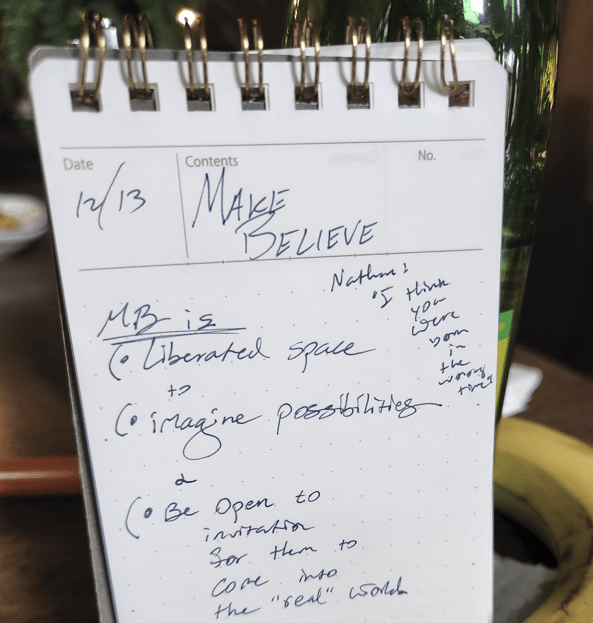 Date
Contents
No.
12/13
MAKE
BELIEVE
Nathan:
"I think
you
were
born
in
the
wrong
time"
MB is
Liberated space
to
imagine possibilities
&
Be Open to
invitation
for them to
come into
the "real" world